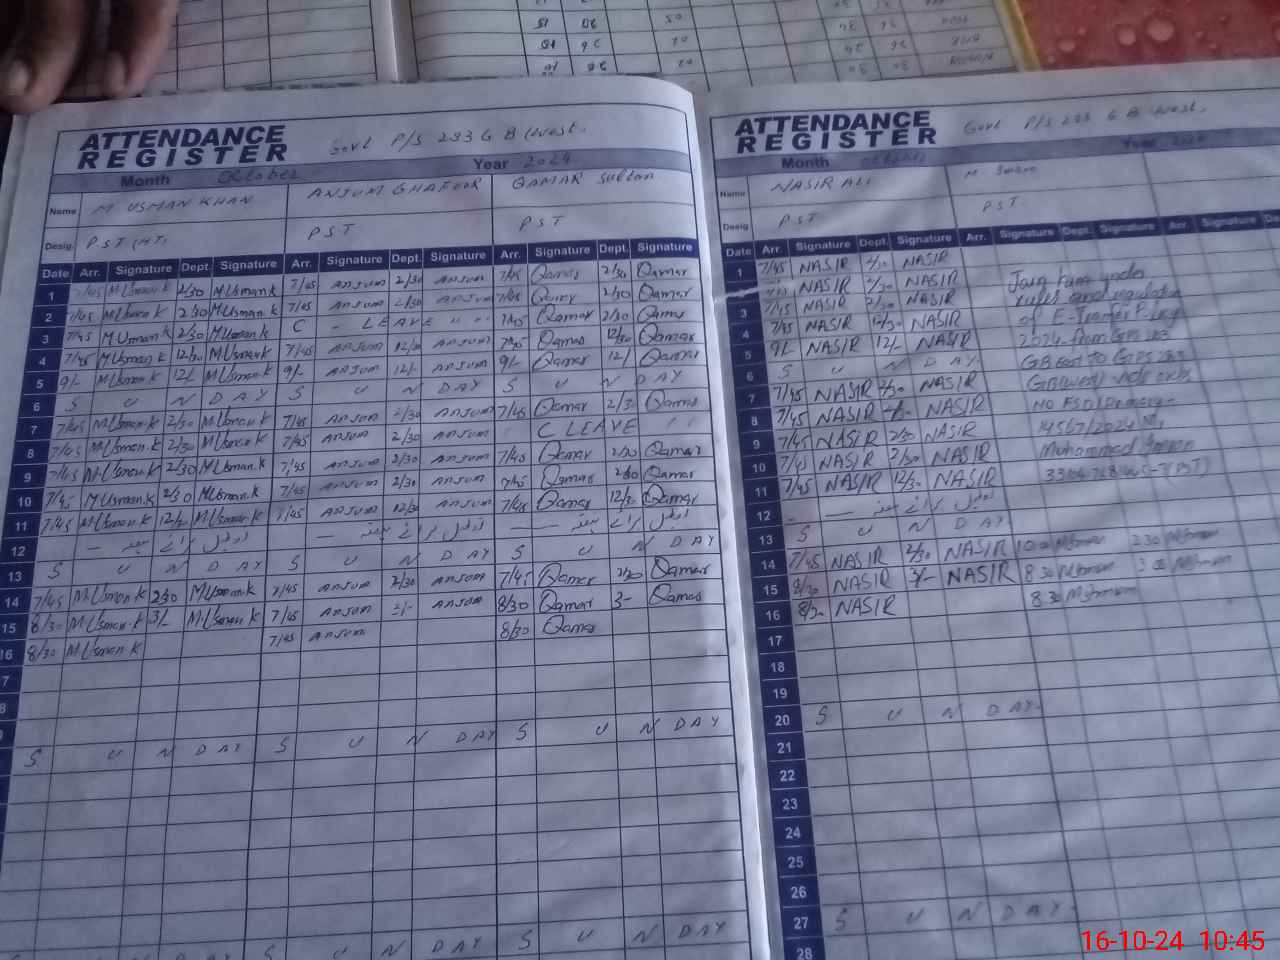 ATTENDANCE
REGISTER
Govt P/S 293 G B (West)
Month October Year 2024
Name M USMAN KHAN ANJUM GHAFOOR QAMAR Sultan
Desig. P.S.T (HT) P.S.T P.S.T
Date Arr. Signature Dept. Signature Arr. Signature Dept. Signature Arr. Signature Dept. Signature
1 7/45 M Usman.k 2/30 M Usman.k 7/45 ANJUM 2/30 ANJUM 7/45 Qamar 2/30 Qamar
2 7/45 M Usman.k 2/30 M Usman.k 7/45 ANJUM 2/30 ANJUM 7/45 Qamar 2/30 Qamar
3 7/45 M Usman.k 2/30 M Usman.k C - LEAVE 7/45 Qamar 2/30 Qamar
4 7/45 M Usman.k 12/30 M Usman.k 7/45 ANJUM 12/30 ANJUM 7/45 Qamar 12/30 Qamar
5 9/- M Usman.k 12/- M Usman.k 9/- ANJUM 12/- ANJUM 9/- Qamar 12/- Qamar
6 S U N DAY S U N DAY S U N DAY
7 7/45 M.Usman.k 2/30 M Usman.k 7/45 ANJUM 2/30 ANJUM 7/45 Qamar 2/30 Qamar
8 7/45 M Usman.k 2/30 M Usman.k 7/45 ANJUM 2/30 ANJUM C LEAVE
9 7/45 M.Usman.k 2/30 M Usman.k 7/45 ANJUM 2/30 ANJUM 7/45 Qamar 2/30 Qamar
10 7/45 M Usman.k 2/30 M Usman.k 7/45 ANJUM 2/30 ANJUM 7/45 Qamar 2/30 Qamar
11 7/45 M.Usman.k 12/30 M.Usman.k 7/45 ANJUM 12/30 ANJUM 7/45 Qamar 12/30 Qamar
12
13 S U N DAY S U N DAY S U N DAY
14 7/45 M.Usman.k 2/30 M.Usman.k 7/45 ANJUM 2/30 ANJUM 7/45 Qamar 2/30 Qamar
15 8/30 M.Usman.k 3/- M.Usman.k 7/45 ANJUM 3/- ANJUM 8/30 Qamar 3- Qamar
16 8/30 M.Usman.k 7/45 ANJUM 8/30 Qamar
7
8
S U N DAY S U N DAY S U N DAY
S U N DAY S U N DAY
ATTENDANCE
REGISTER
Govt P/S 293 G B (West)
Month October Year 2024
Name NASIR ALI M. Imran
Desig. P.S.T P.S.T
Date Arr. Signature Dept. Signature Arr. Signature Dept. Signature Arr. Signature Dept.
1 7/45 NASIR 2/30 NASIR
7/45 NASIR 2/30 NASIR Join from under
3 7/45 NASIR 2/30 NASIR rules and regulation
4 7/45 NASIR 12/30 NASIR of E-Transfer Policy
5 9/- NASIR 12/- NASIR 2024 from GPS 283
6 S U N DAY GB East to GPS 293
7 7/45 NASIR 2/30 NASIR GB(West) vide order
8 7/45 NASIR 2/30 NASIR NO
9 7/45 NASIR 2/30 NASIR 14567/2024
10 7/45 NASIR 2/30 NASIR Muhammad Imran
11 7/45 NASIR 12/30 NASIR
12
13 S U N DAY
14 7/45 NASIR 2/30 NASIR 10 00 M Imran 2 30 M Imran
15 8/30 NASIR 3/- NASIR 8 30 M Imran 3 00 M Imran
16 8/30 NASIR 8 30 M Imran
17
18
19
20 S U N DAY
21
22
23
24
25
26
27 S U N DAY
28
16-10-24 10:45